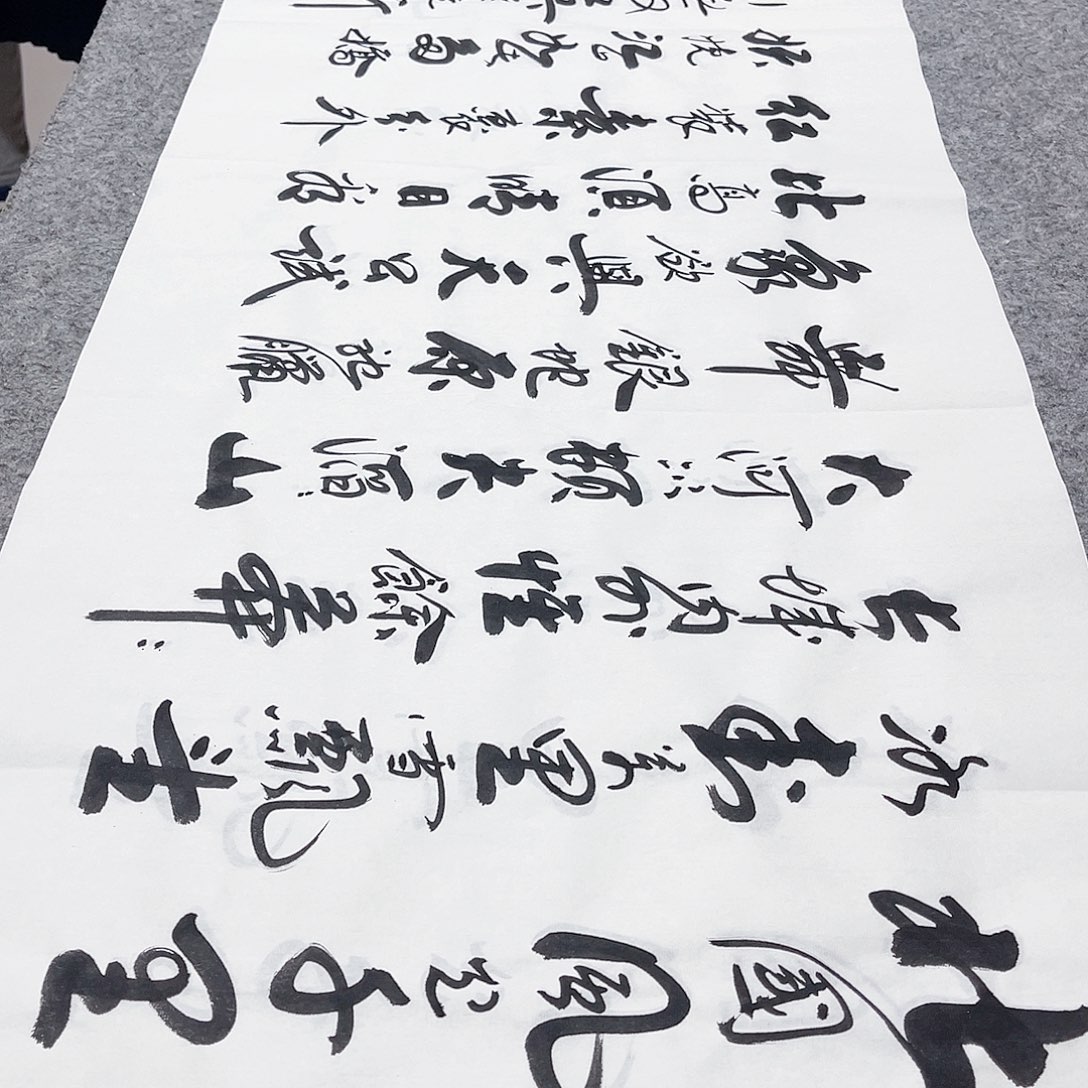 北國風光千里
冰封萬里雪飄望
長城內外惟餘莽莽
大河上下頓失滔滔山
舞銀蛇原馳蠟
象欲與天公試
比高須晴日看
紅裝素裹分外
妖嬈江山如此多嬌